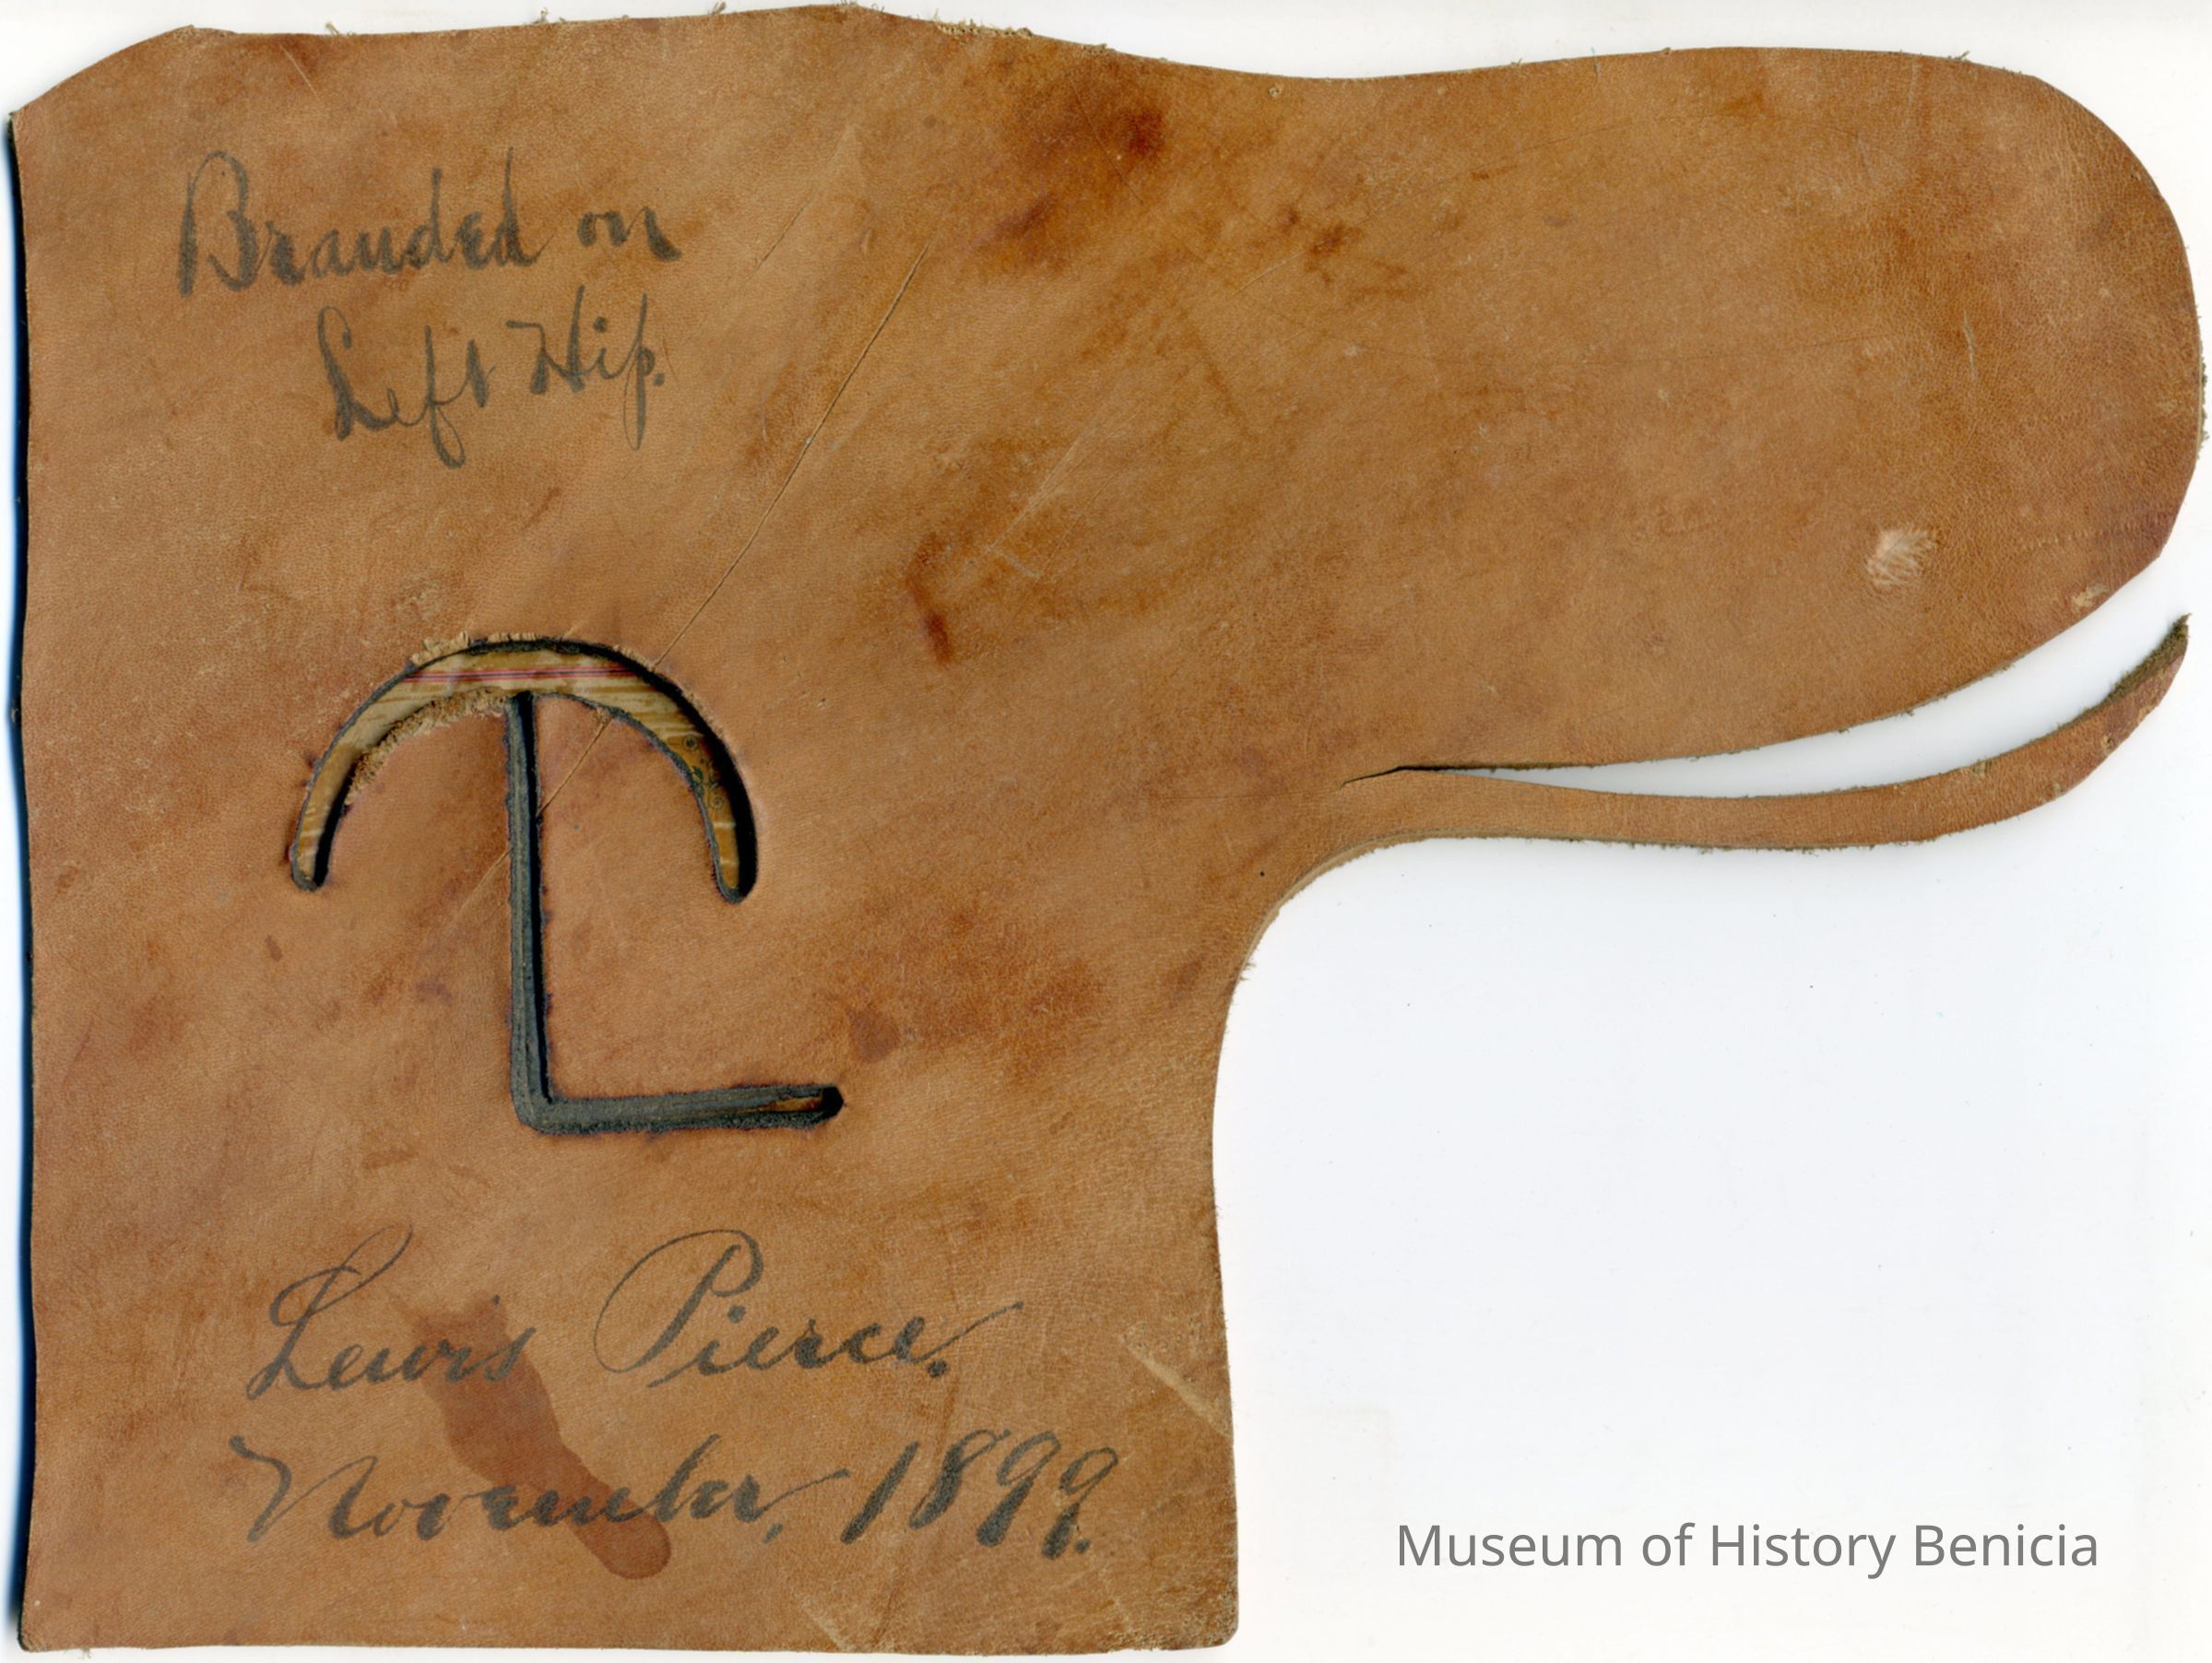 Branded on
Left Hip.
Lewis Pierce.
November, 1899.
Museum of History Benicia